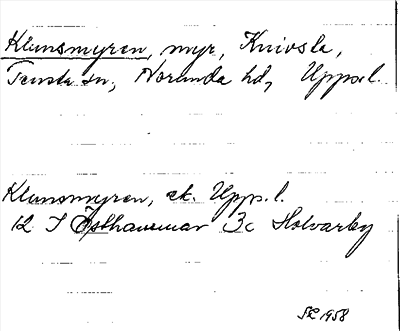 Klunsmyren, myr, Knivsla,
Tensta sn, Norunda hd, Upps.l.
Klunsmyren, ek. Upps.l.
12 I Östhammar 3c Holvarby
1958